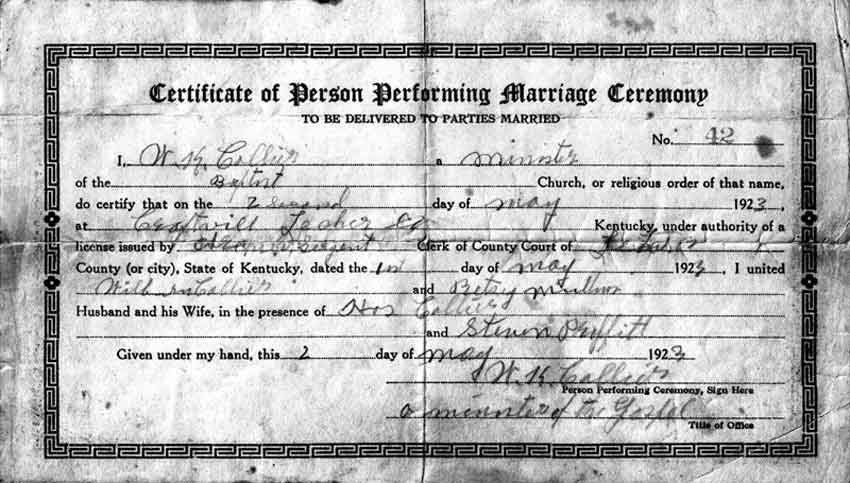 Certificate of Person Performing Marriage Ceremony
TO BE DELIVERED TO PARTIES MARRIED
No. 42
I, W. K. Collier a minister
of the Baptist Church, or religious order of that name,
do certify that on the 2 day of May 1923,
at Letcher Co Kentucky, under authority of a
license issued by Clerk of County Court of
County (or city), State of Kentucky, dated the day of may 1923, I united
Collier and Betsy Mullins
Husband and his Wife, in the presence of Collier
and Steven Pruffitt
Given under my hand, this 2 day of may 1923
W. K. Collier
Person Performing Ceremony, Sign Here
a minister of the Gospel
Title of Office